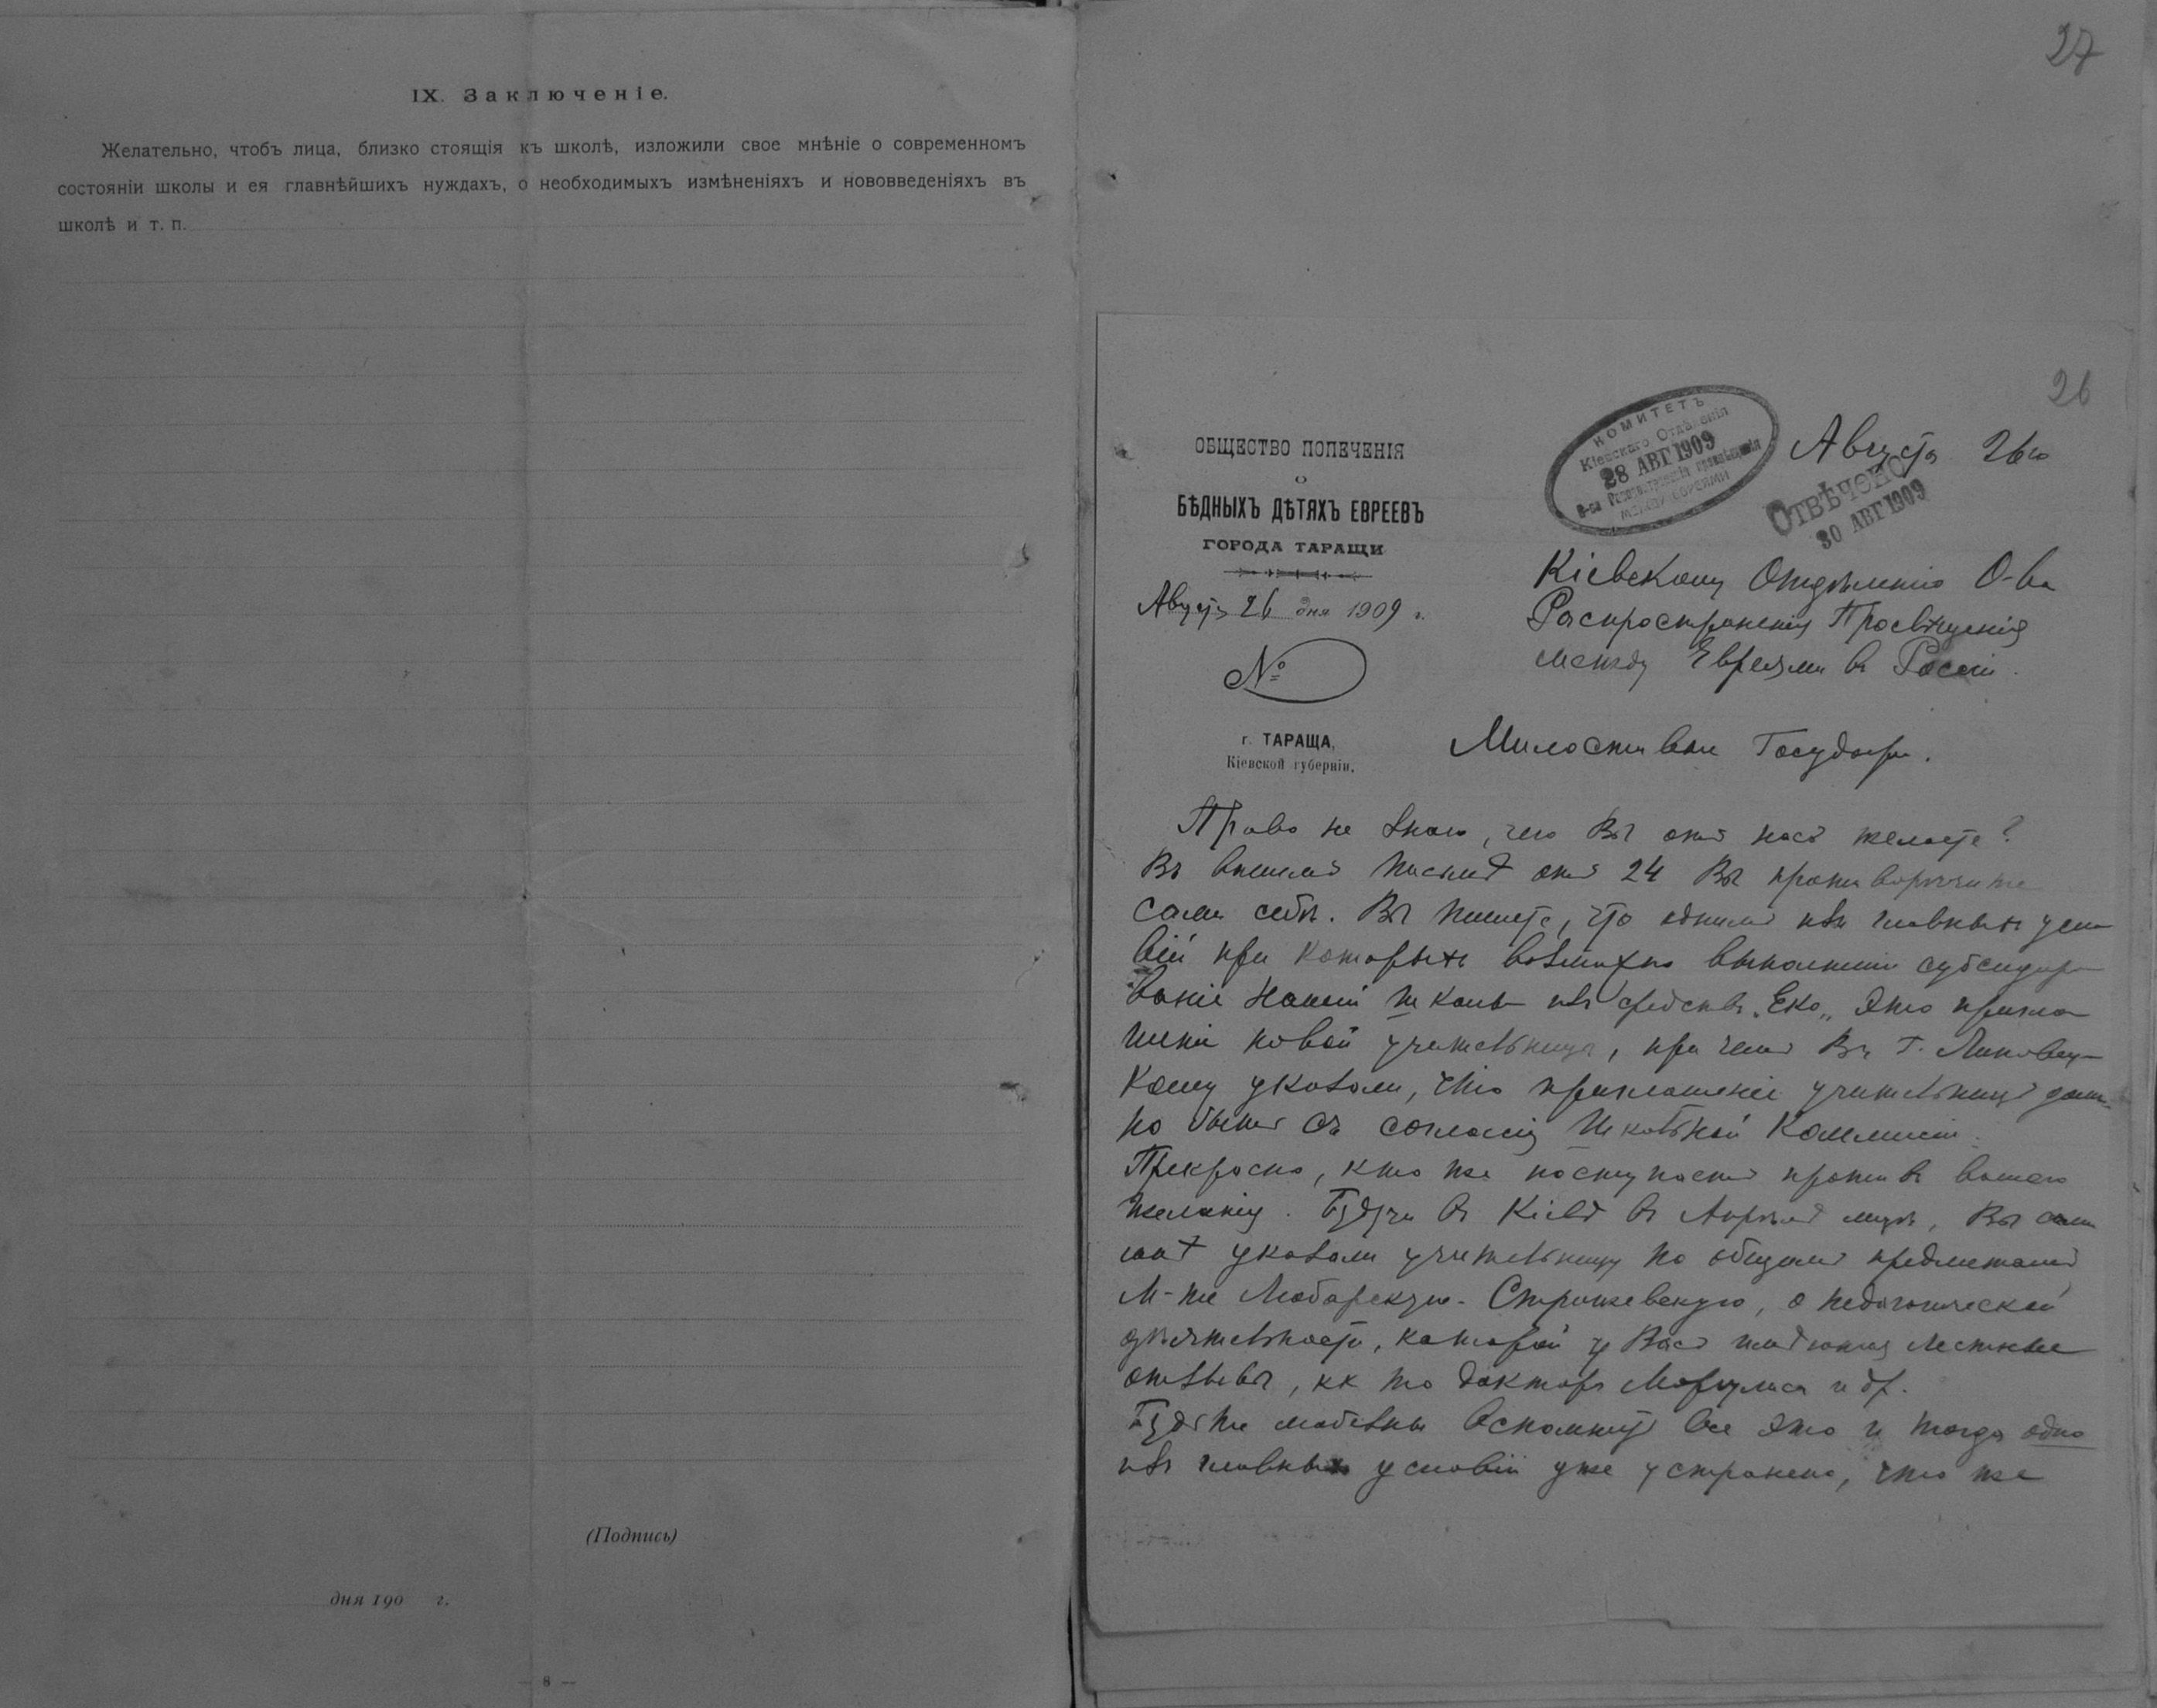 IX. Заключеніе.
Желательно, чтобъ лица, близко стоящія къ школѣ, изложили свое мнѣніе о современномъ
состояніи школы и ея главнѣйшихъ нуждахъ, о необходимыхъ измѣненіяхъ и нововведеніяхъ въ
школѣ и т. п.
(Подпись)
дня 190 г.
— 8 —
27
26
ОБЩЕСТВО ПОПЕЧЕНІЯ
О
БѢДНЫХЪ ДѢТЯХЪ ЕВРЕЕВЪ
ГОРОДА ТАРАЩИ
Августа 26 дня 1909 г.
№
г. ТАРАЩА,
Кіевской губерніи.
КОМИТЕТЪ
Кіевскаго Отдѣленія
28 АВГ 1909
О-ва Распространенія просвѣщенія
МЕЖДУ ЕВРЕЯМИ
Августа 26го
ОТВѢЧЕНО
30 АВГ 1909
Кіевскому Отдѣленію О-ва
Распространенія Просвѣщенія
между Евреями въ Россіи.
Милостивые Государи.
Право не знаю, чего Вы отъ насъ желаете?
Въ вашемъ письмѣ отъ 24 Вы противорѣчите
сами себѣ. Вы пишете, что однимъ изъ главныхъ усло
вій при которыхъ возможно субсидиро
ваніе нашей школы изъ средствъ „Еко„ это пригла
шеніе новой учительницы, при чемъ Вы г.
кому указали, что приглашеніе учительницы долж
но быть съ согласія Школьной Коммиссіи.
Прекрасно, кто же поступаетъ противъ вашего
желанія. Будучи въ Кіевѣ въ Апрѣлѣ мцѣ, Вы сами
мнѣ указали учительницу по общимъ предметамъ
М-ме Любарскую-Стрижевскую, о педагогической
дѣятельности, которой у Васъ имѣются лестные
отзывы, кк то доктора Маргулиса и др.
Будьте любезны вспомнить все это и тогда одно
изъ главныхъ условій уже устранено, что же